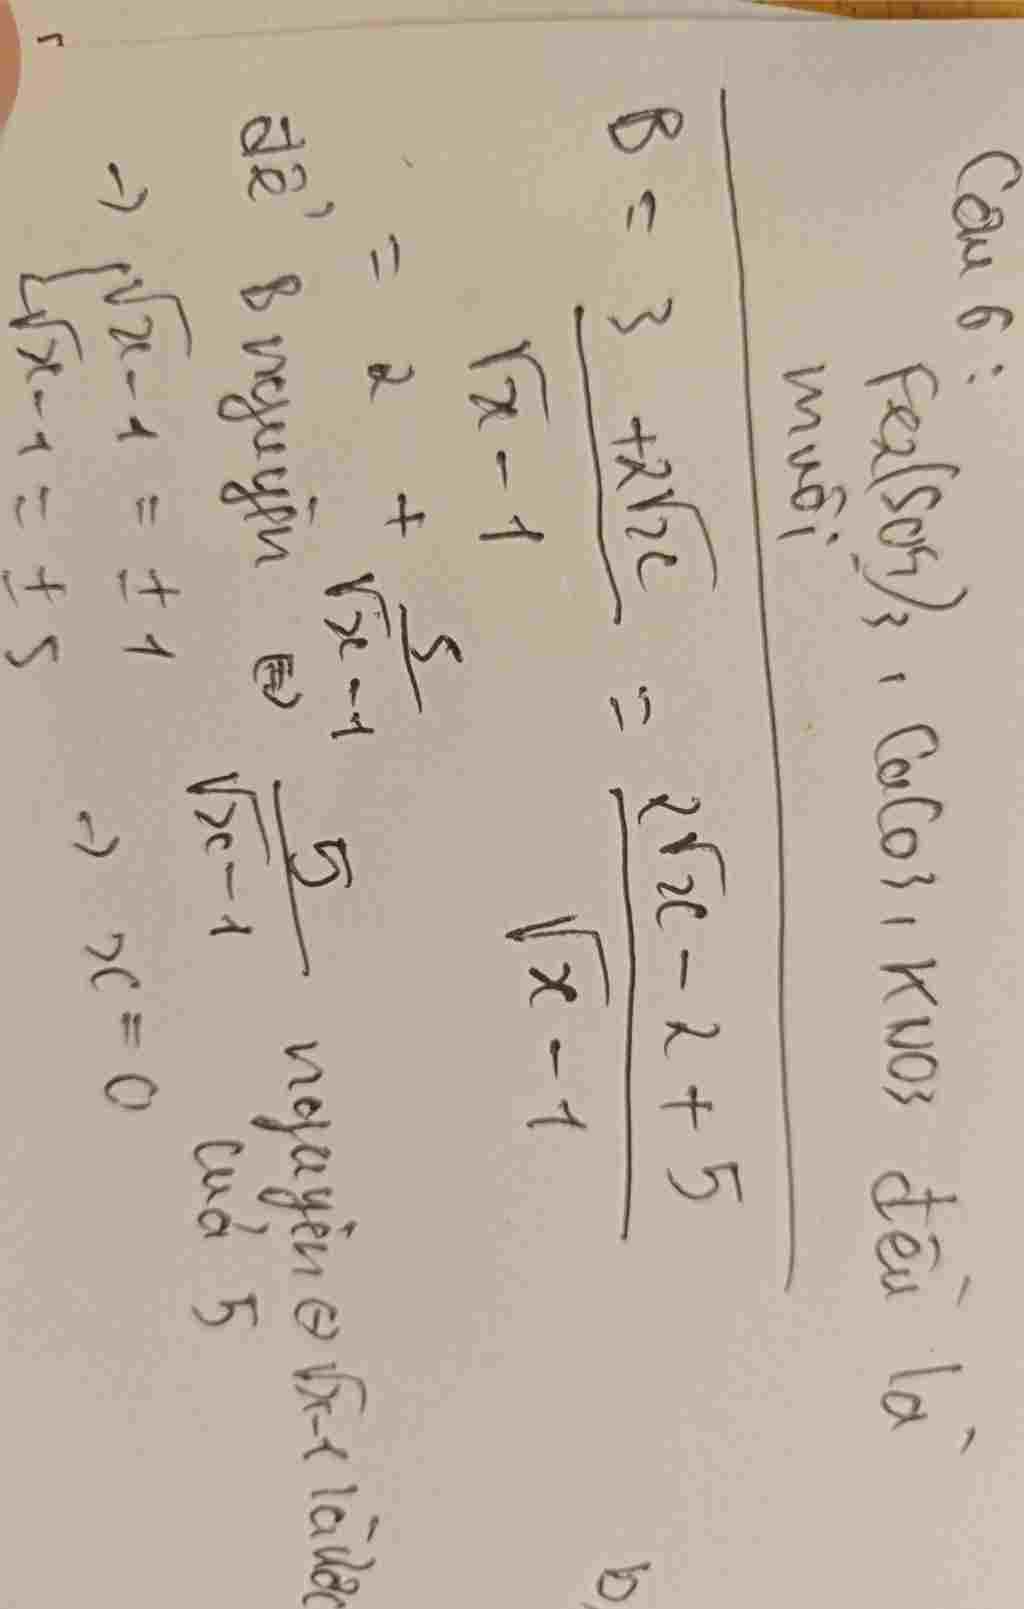 Câu 6: Fe2(SO4)3, CaCO3, KNO3 đều là
muối
B = 3 + 2√x / √x - 1 = 2√x - 2 + 5 / √x - 1
= 2 + 5 / √x - 1
để B nguyên ⇔ 5 / √x - 1 nguyên ⇔ √x - 1 là ước
của 5
→ [ √x - 1 = ± 1
√x - 1 = ± 5
→ x = 0
b,